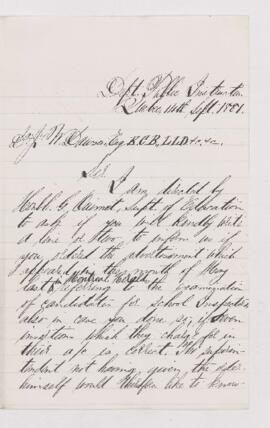 Dept. Public Instruction
Quebec 14th Sept. 1881.
W. Dawson Esq K.C.B, L.L.D &c, &c.
Sir
I am directed by
Honble G. Ouimet, Supt of Education
to ask if you will kindly write
a line or two, to inform us if
you ordered the advertisement which
appeared in the month of May
Montreal Herald
last referring to the examination
of candidates for School Inspectors
also in case you done so, if seven
insertions which they charge for in
their a/c is correct. The Superin-
tendent not having given the order
himself would therefore like to know